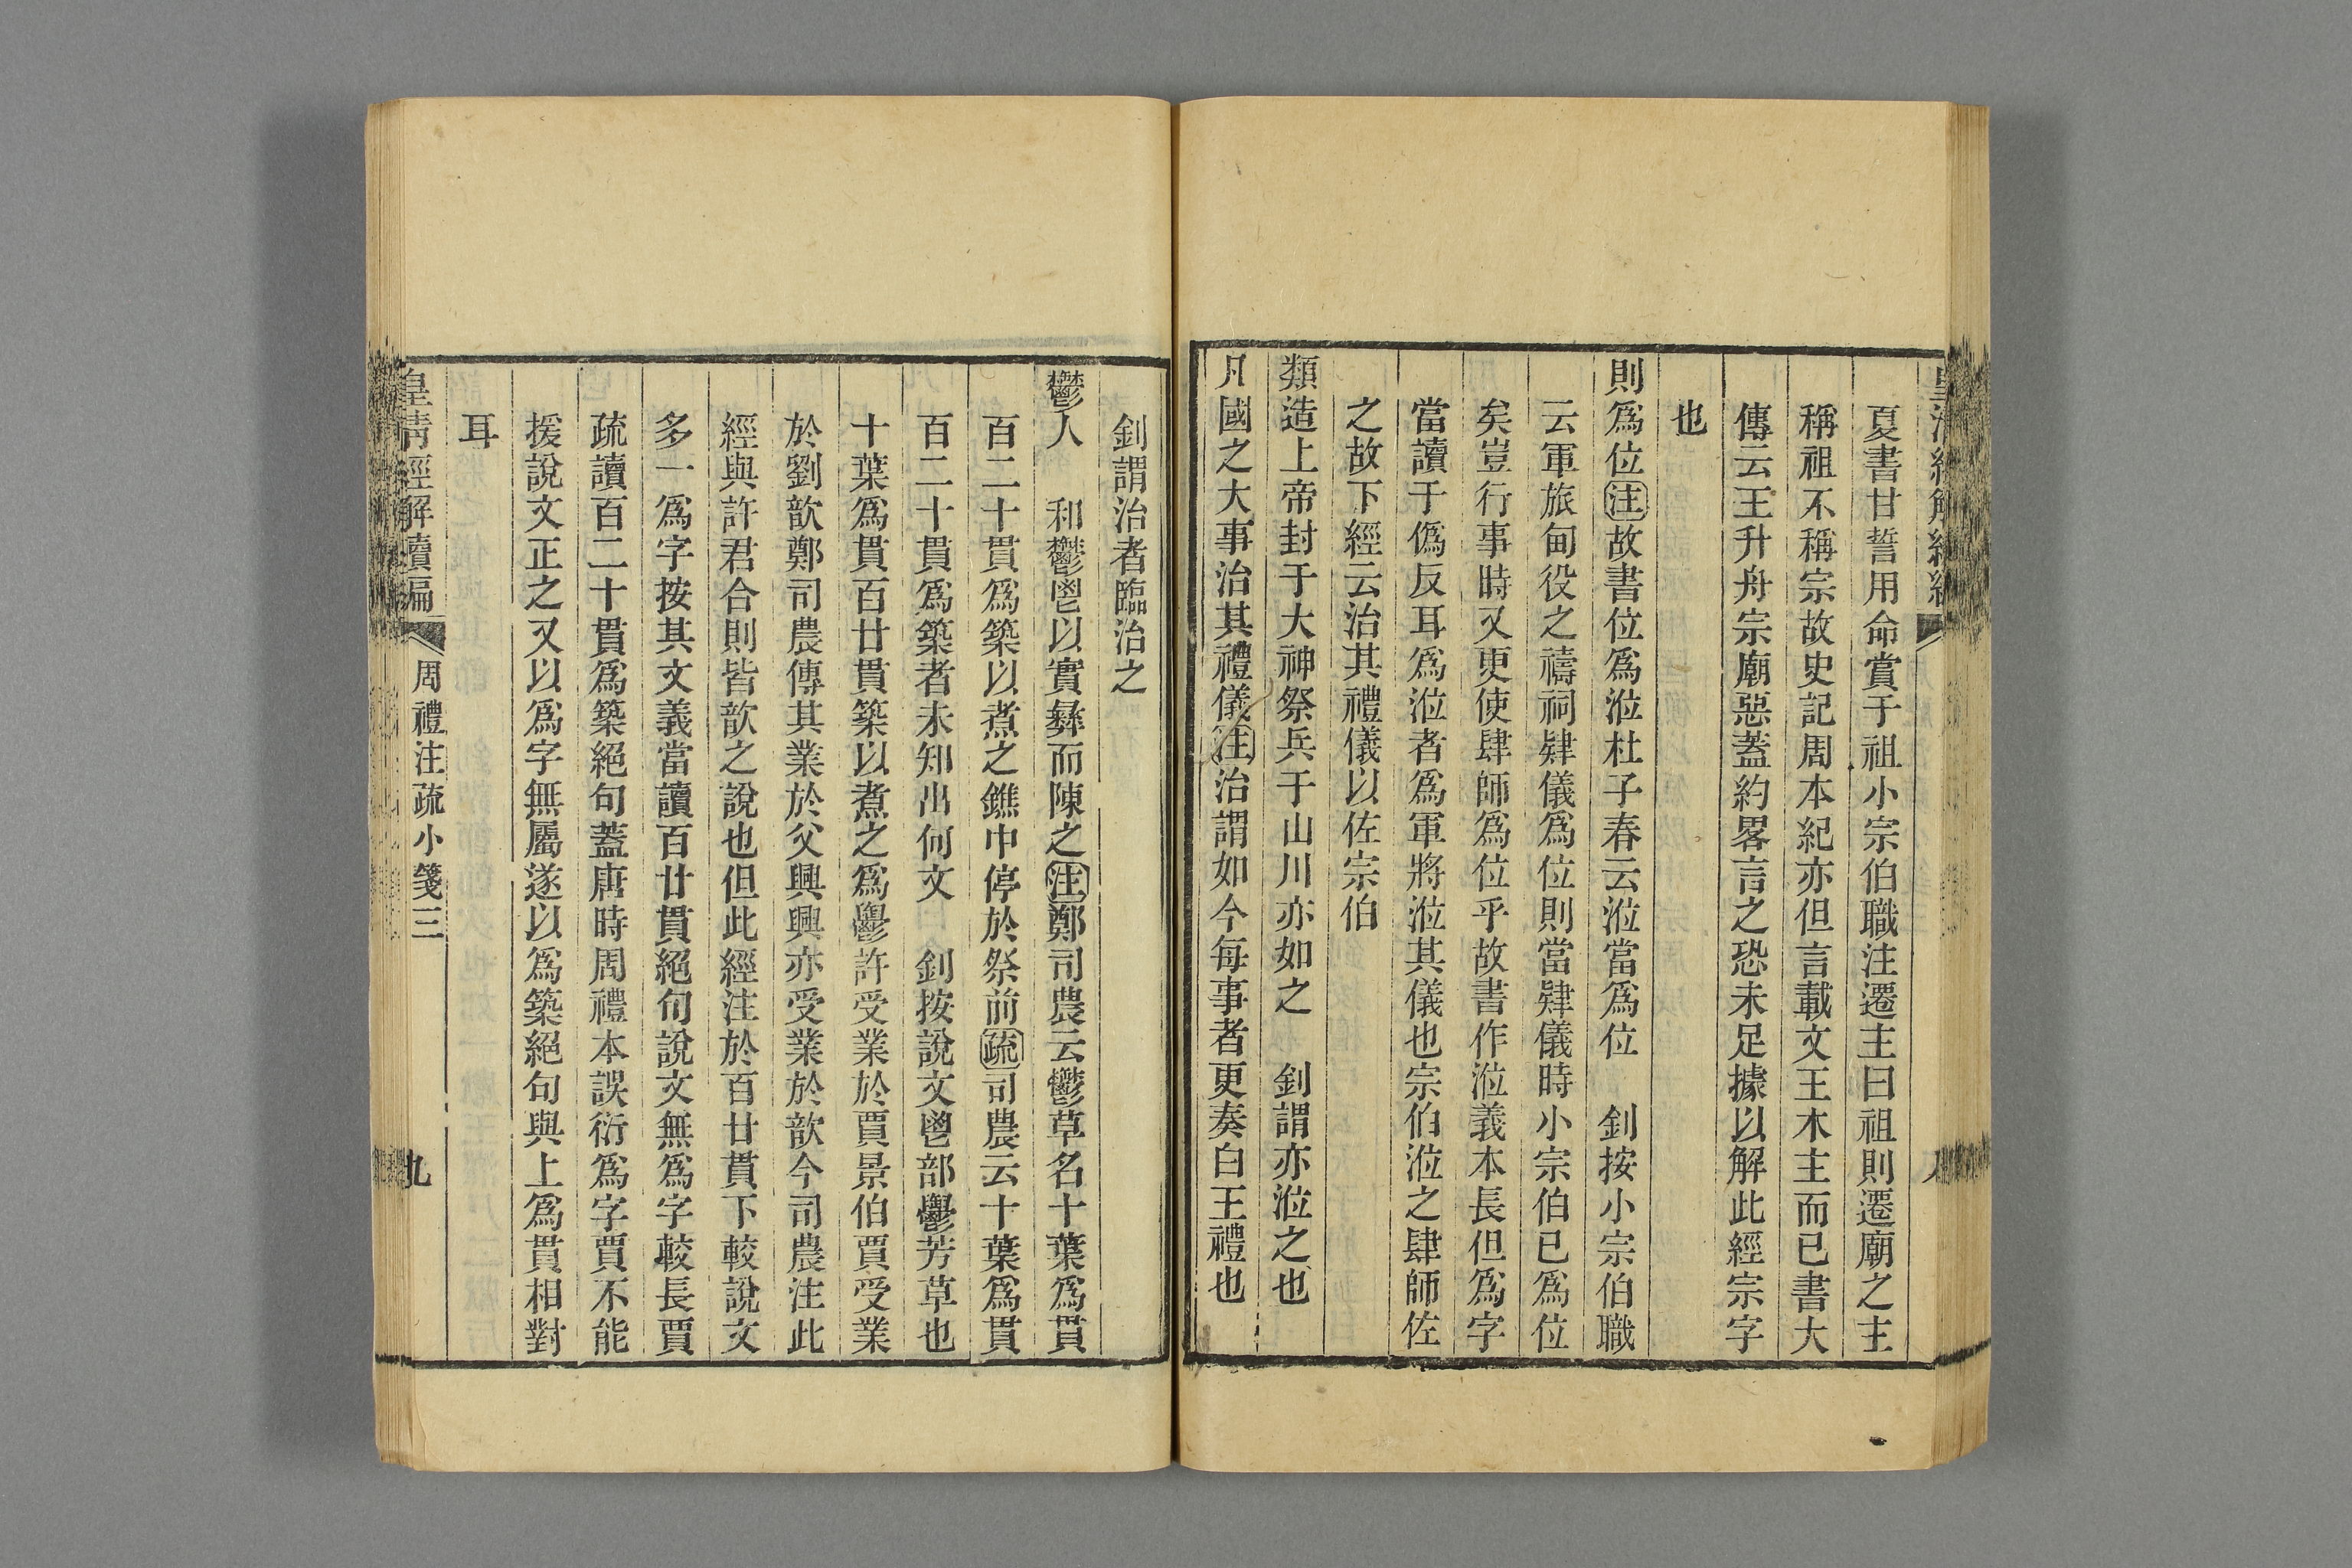 夏書甘誓用命賞于祖小宗伯職注遷主曰祖則遷廟之主
稱祖不稱宗故史記周本紀亦但言載文王木主而已書大
傳云王升舟宗廟惡蓋約畧言之恐未足據以解此經宗字
也
則爲位注故書位爲涖杜子春云涖當爲位　釗按小宗伯職
云軍旅甸役之禱祠肄儀爲位則當肄儀時小宗伯已爲位
矣豈行事時又更使肆師爲位乎故書作涖義本長但爲字
當讀于僞反耳爲涖者爲軍將涖其儀也宗伯涖之肆師佐
之故下經云治其禮儀以佐宗伯
類造上帝封于大神祭兵于山川亦如之　釗謂亦涖之也
凡國之大事治其禮儀注治謂如今每事者更奏白王禮也
釗謂治者臨治之
鬱人　和鬱鬯以實彝而陳之注鄭司農云鬱草名十葉爲貫
百二十貫爲築以煮之鐎中停於祭前疏司農云十葉爲貫
百二十貫爲築者未知出何文　釗按說文鬯部鬱芳草也
十葉爲貫百廿貫築以煮之爲鬱許受業於賈景伯賈受業
於劉歆鄭司農傳其業於父興興亦受業於歆今司農注此
經與許君合則皆歆之說也但此經注於百廿貫下較說文
多一爲字按其文義當讀百廿貫絕句說文無爲字較長賈
疏讀百二十貫爲築絕句蓋唐時周禮本誤衍爲字賈不能
援說文正之又以爲字無屬遂以爲築絕句與上爲貫相對
耳
皇清經解續編　周禮注疏小箋三　九